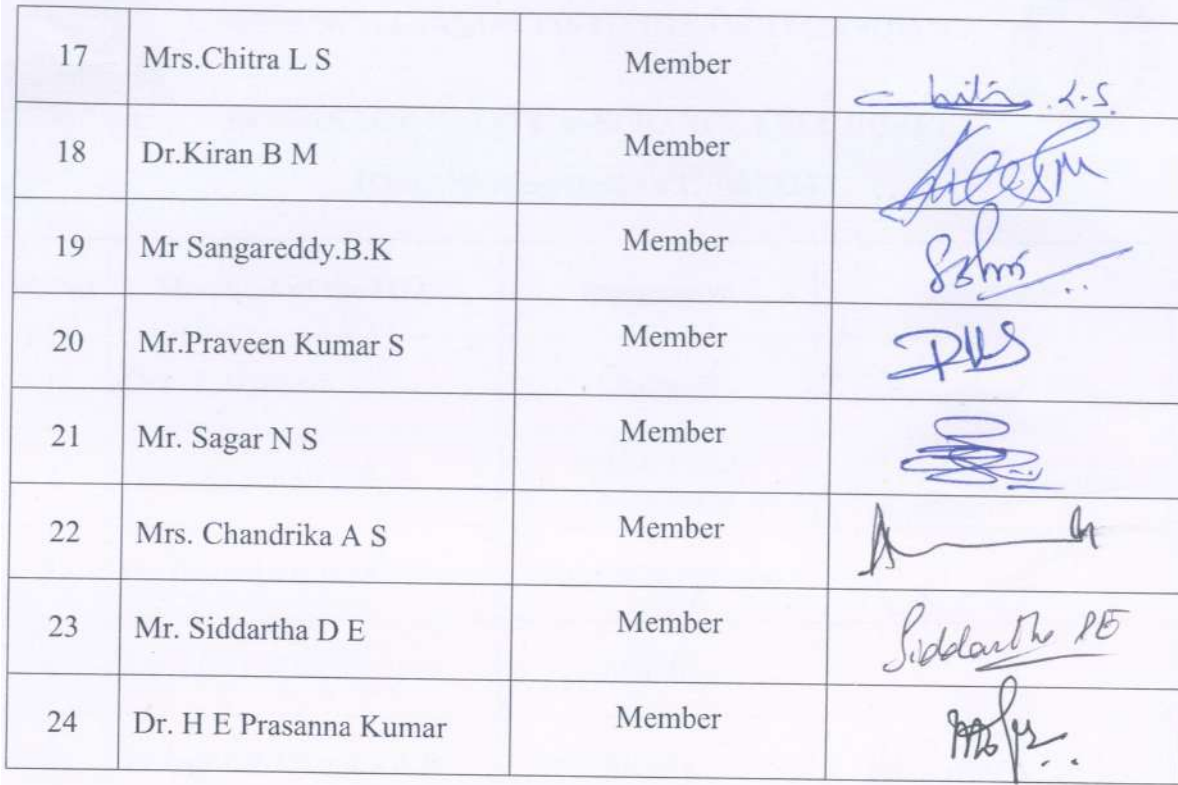 17 Mrs.Chitra L S Member Chitra. L.S.
18 Dr.Kiran B M Member
19 Mr Sangareddy.B.K Member
20 Mr.Praveen Kumar S Member
21 Mr. Sagar N S Member
22 Mrs. Chandrika A S Member
23 Mr. Siddartha D E Member Siddartha DE
24 Dr. H E Prasanna Kumar Member